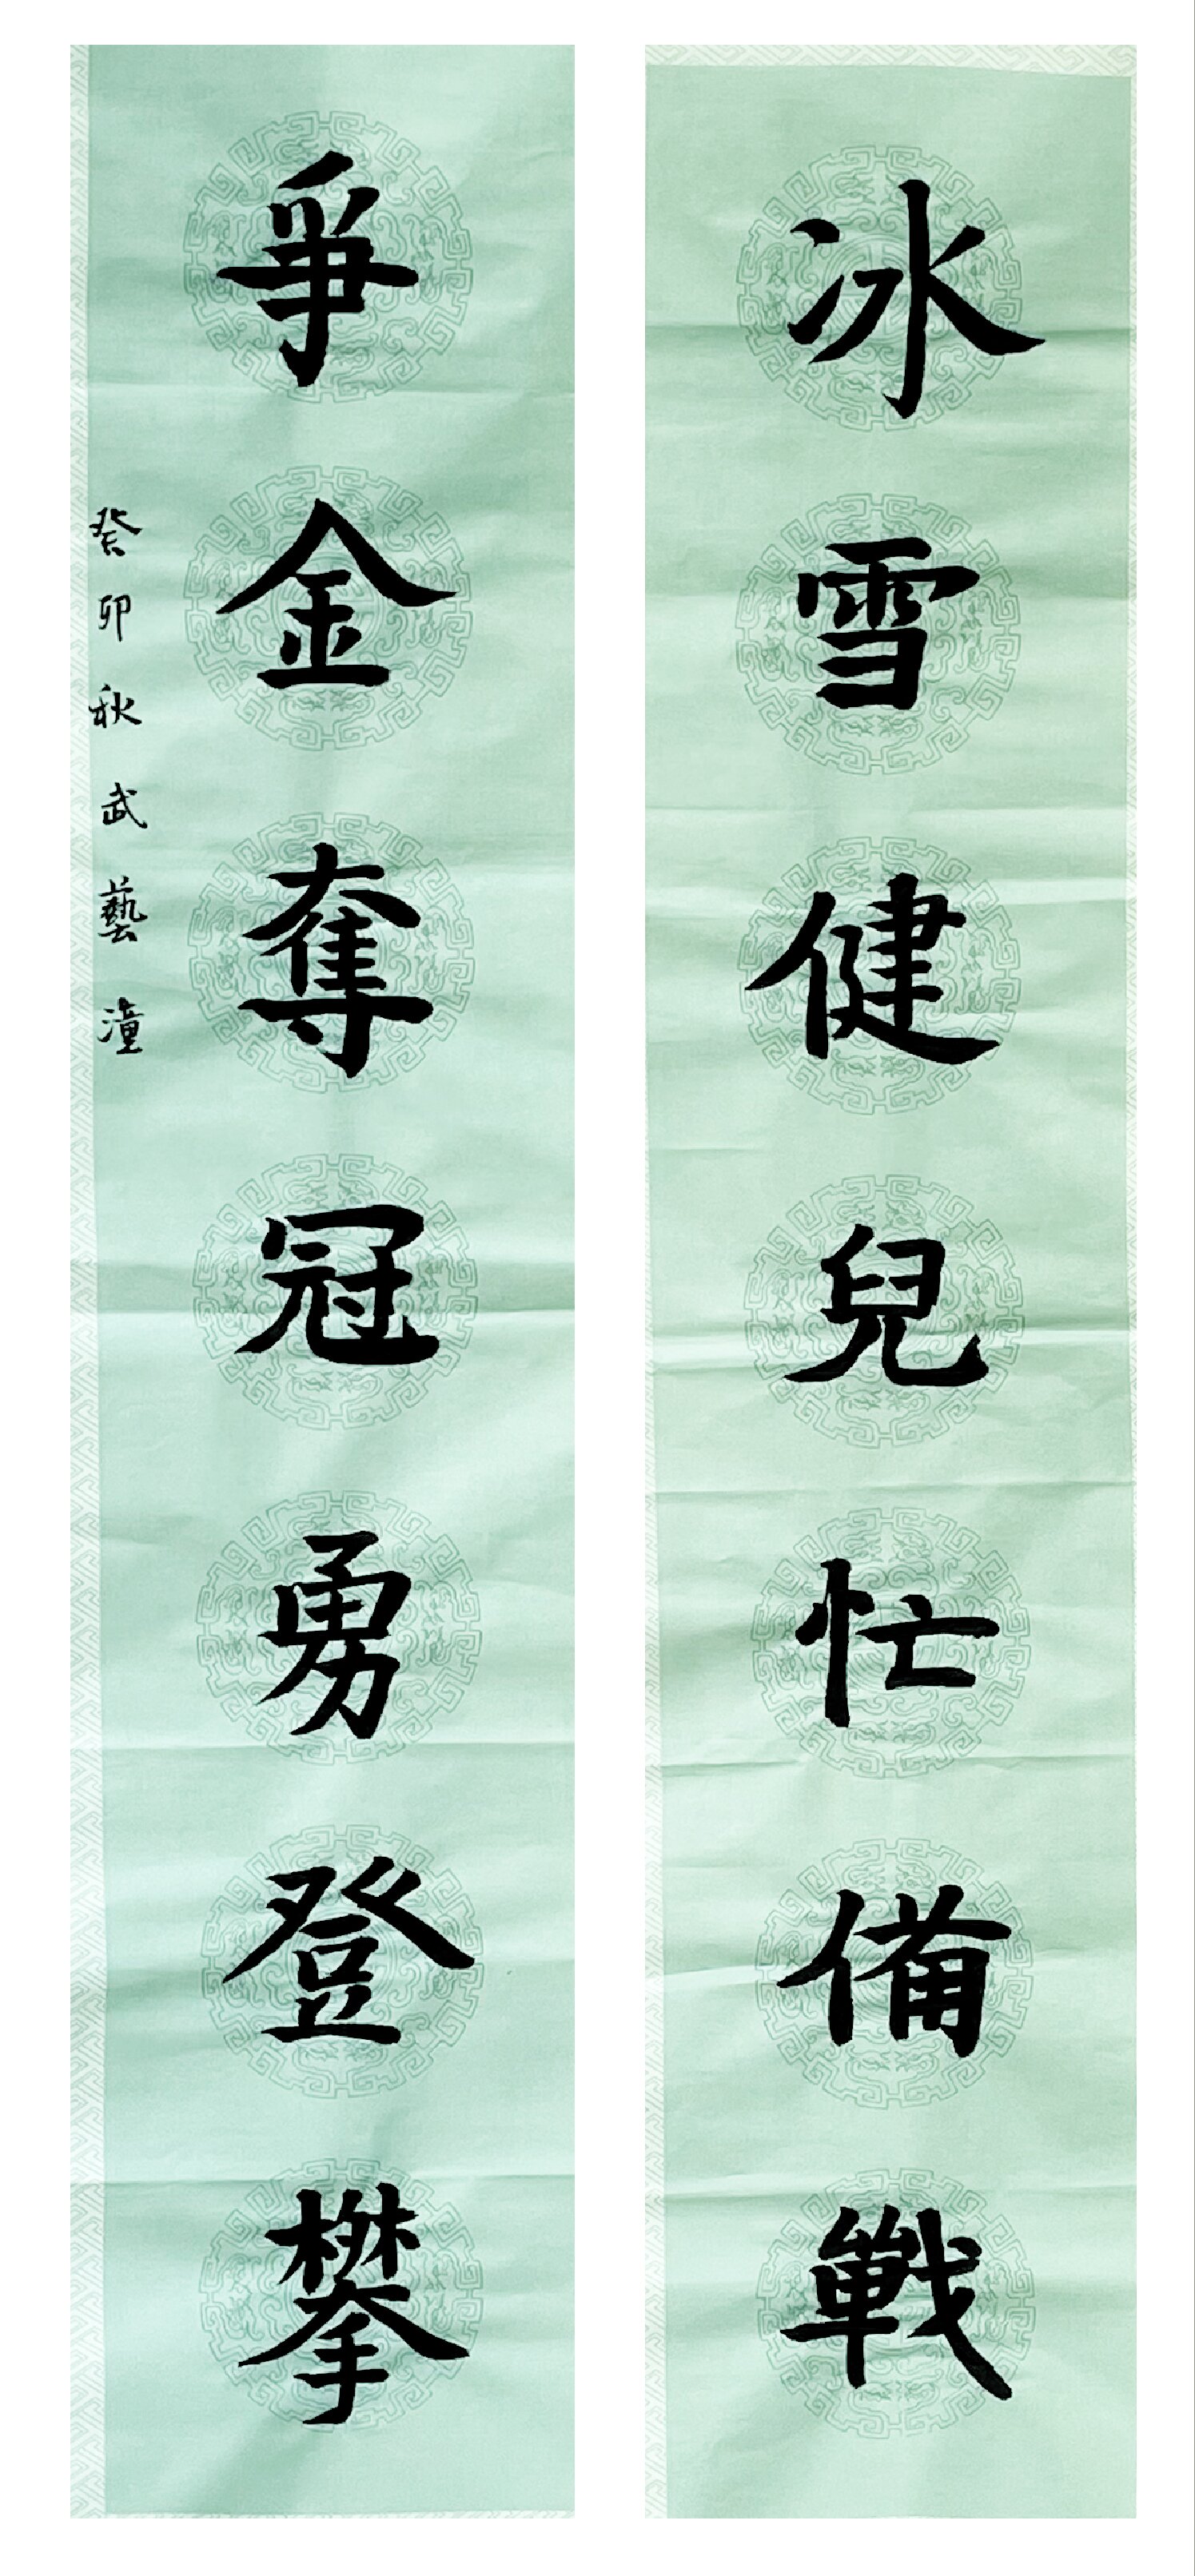 冰雪健兒忙備戰
爭金奪冠勇登攀
癸卯秋武藝潼